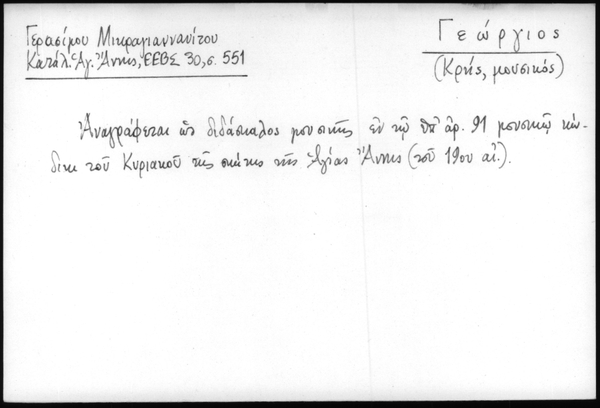 Γερασίμου Μικραγιαννανίτου
Κατάλ. Ἁγ. Ἄννης, ΕΕΒΣ 30, σ. 551
Γεώργιος
(Κρής, μουσικός)
Ἀναγράφεται ὡς διδάσκαλος μουσικῆς ἐν τῷ ὑπ' ἀρ. 91 μουσικῷ κώ-
δικι τοῦ Κυριακοῦ τῆς σκήτης τῆς Ἁγίας Ἄννης (τοῦ 19ου αἰ.).